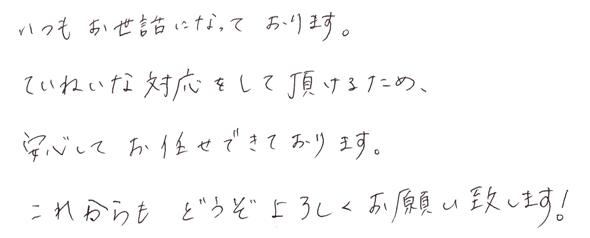 いつもお世話になっております。
ていねいな対応をして頂けるため、
安心してお任せできております。
これからもどうぞよろしくお願い致します!